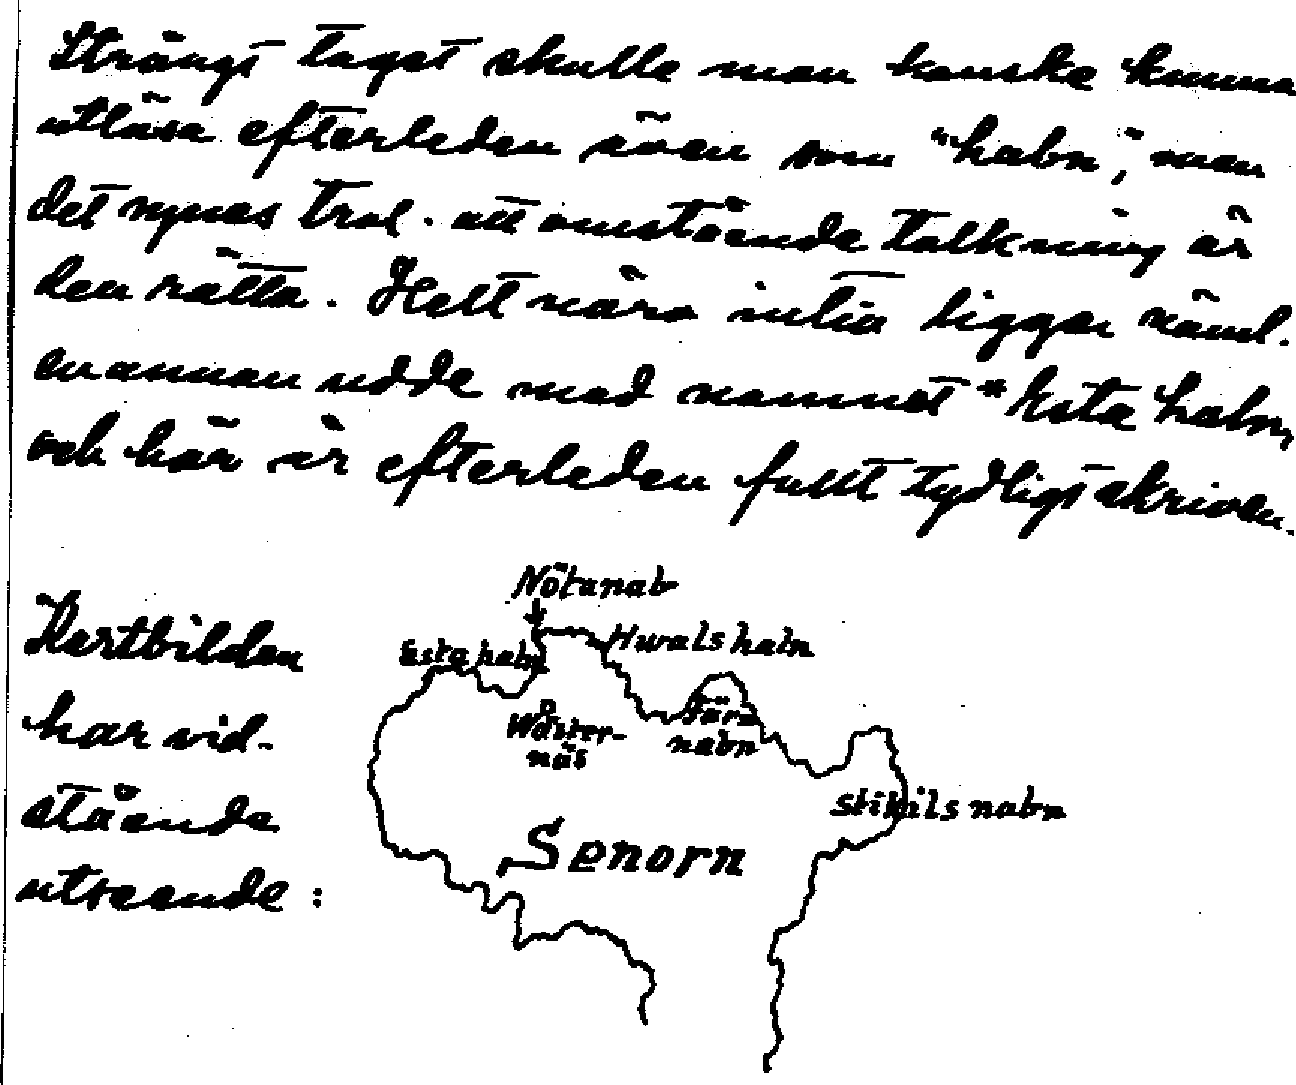 Strängt taget skulle man kanske kunna
utläsa efterleden även som "habn", men
det synes trol. att omstående tolkning är
den rätta. Helt nära intia ligger näml.
en annan udde med namnet "Esta habn,
och här är efterleden fullt tydligt skriven.
Nötanab
Esta habn
Hwals habn
Wåster-
näs
Tär-
nabn
Stikils nabn
Senorn
Kartbilden
har vid-
stående
utseende: